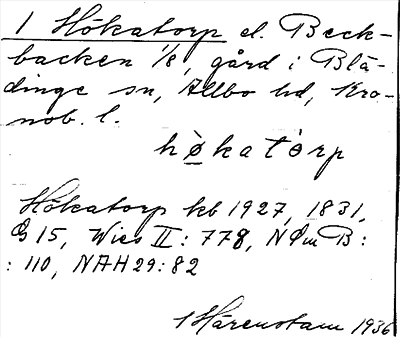 1 Hökatorp el. Beck-
backen 1/8, gård i Blä-
dinge sn, Allbo hd, Kro-
nob. l.
hø̀katòrp
Hökatorp kb 1927, 1831,
G 15, Wies II: 778, NÖm B:
: 110, NAH 29: 82
Härenstam 1936